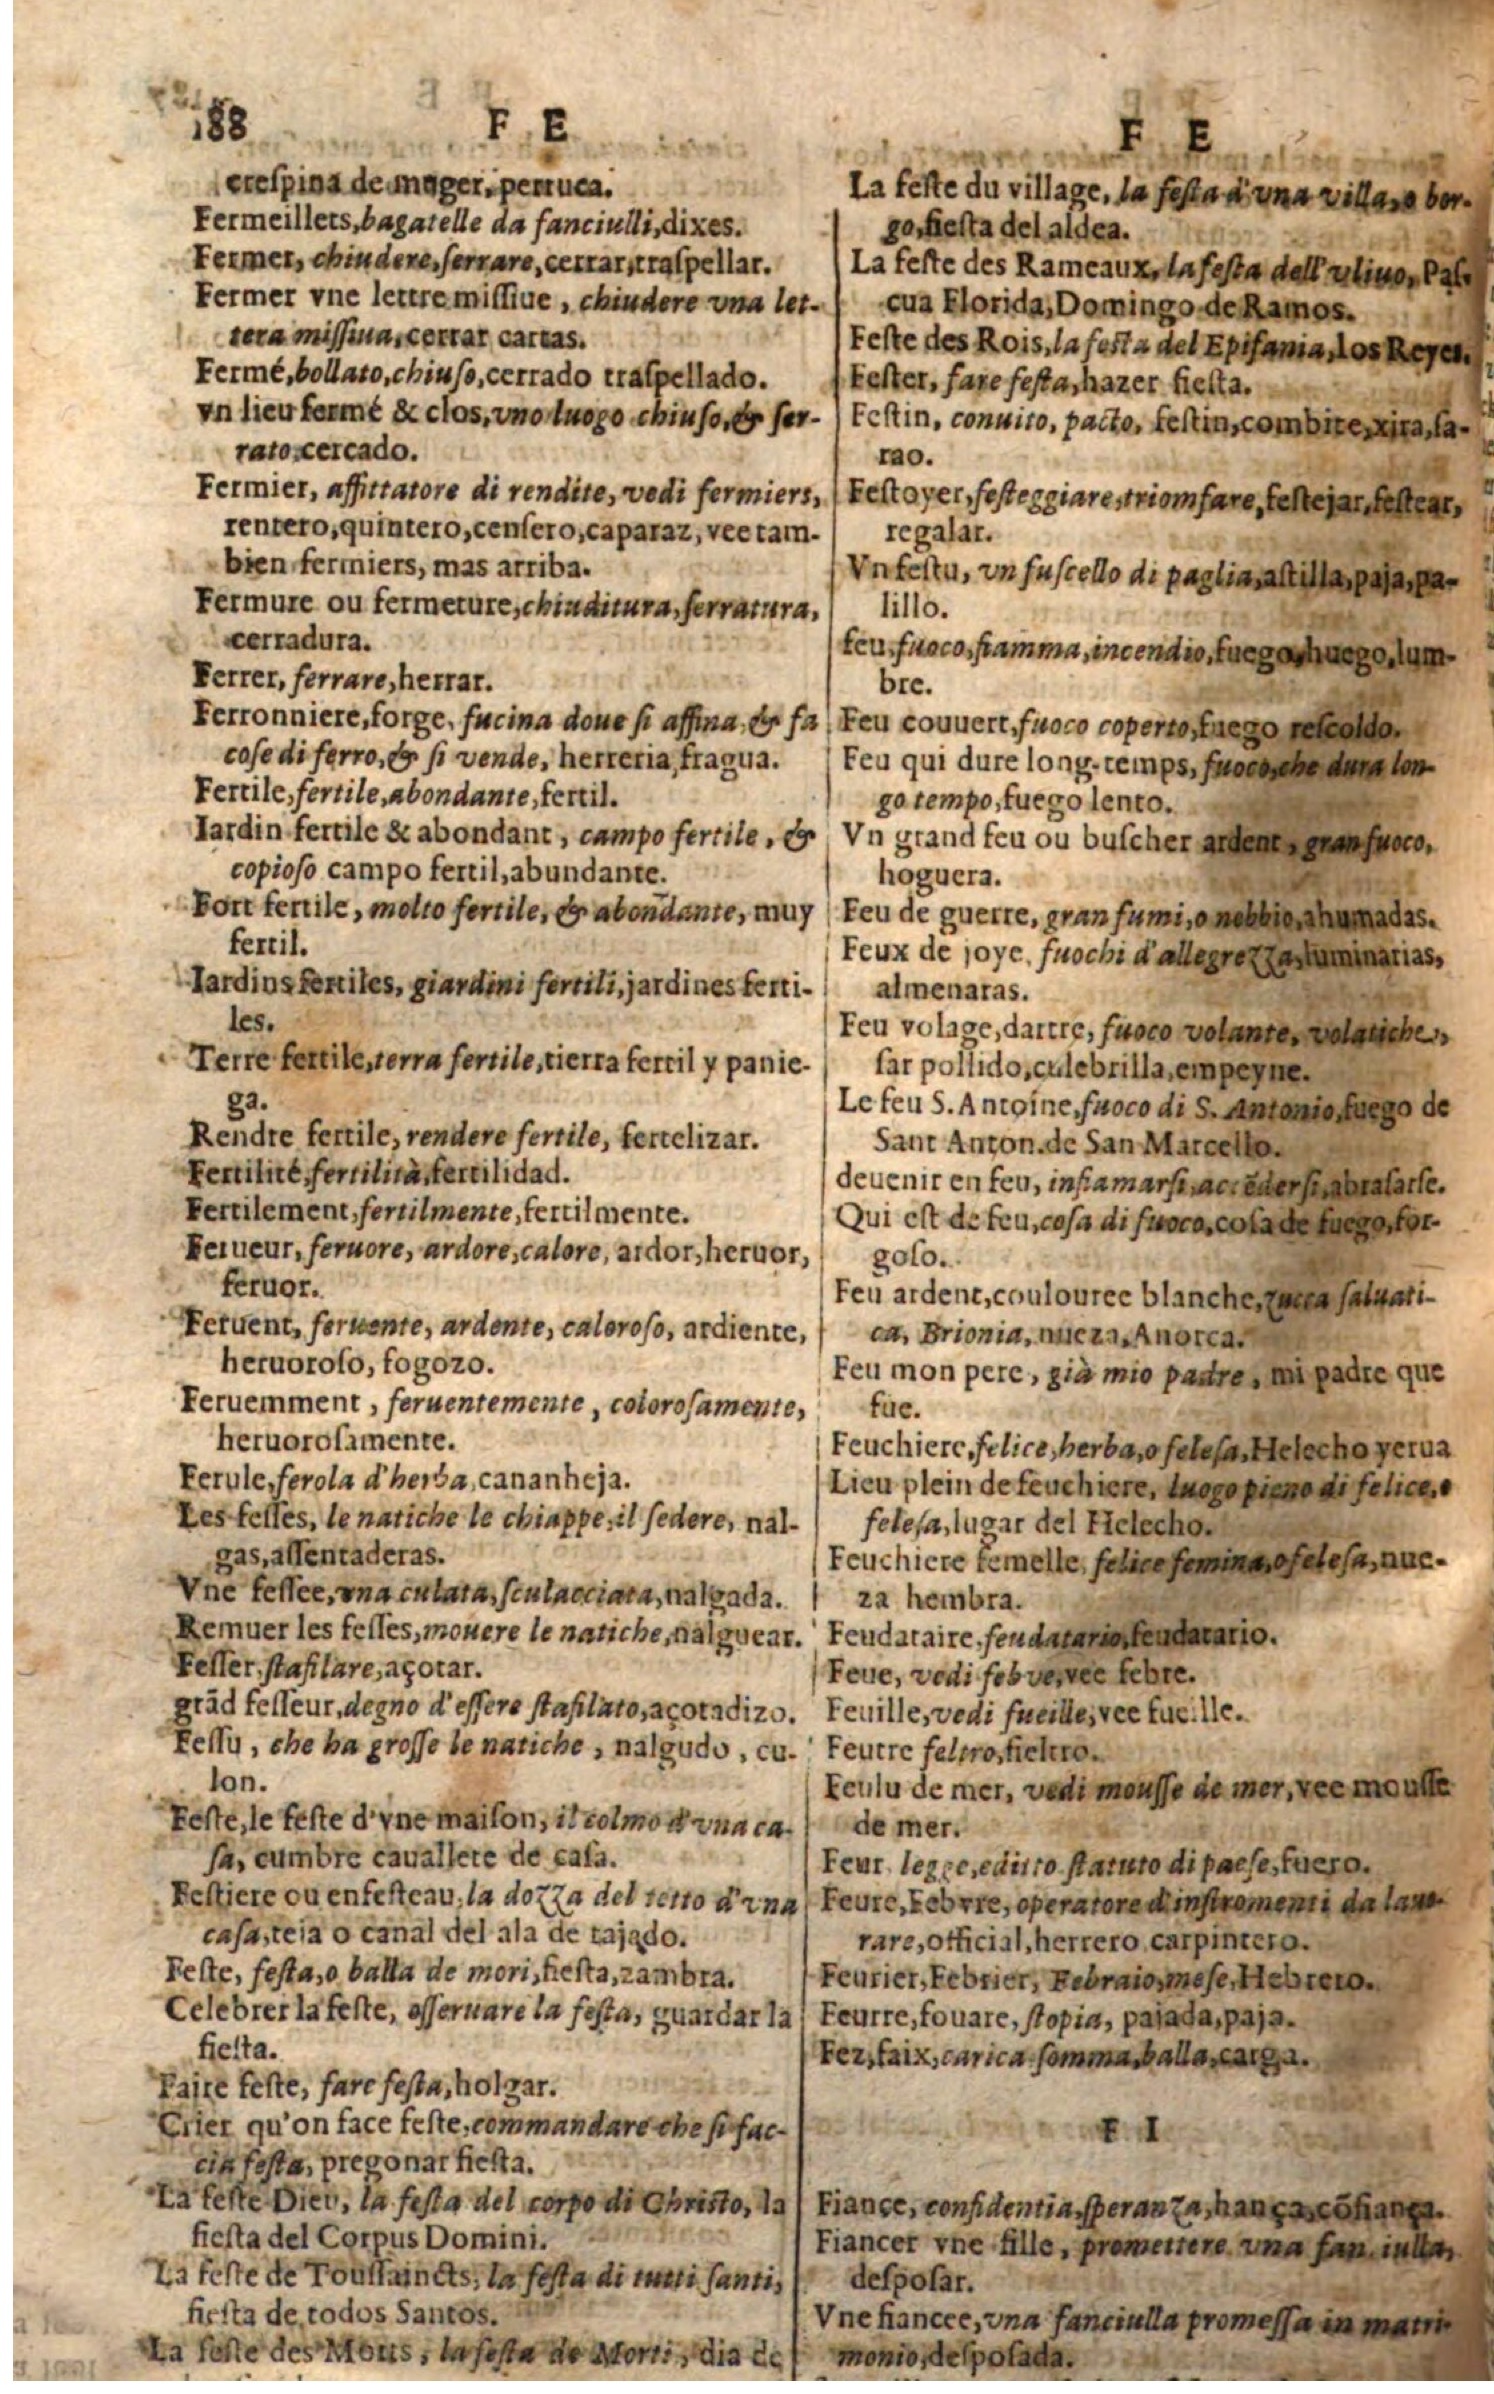 188
F E
crespina de muger, perruca.
Fermeillets, bagatelle da fanciulli, dixes.
Fermer, chiudere, serrare, cerrar, traspellar.
Fermer vne lettre missiue, chiudere vna let-
tera missiua, cerrar cartas.
Fermé, bollato, chiuso, cerrado traspellado.
vn lieu fermé & clos, vno luogo chiuso, & ser-
rato, cercado.
Fermier, affittatore di rendite, vedi fermiers,
rentero, quintero, censero, caparaz, vee tam-
bien fermiers, mas arriba.
Fermure ou fermeture, chiuditura, serratura,
cerradura.
Ferrer, ferrare, herrar.
Ferronniere, forge, fucina doue si affina, & fa
cose di ferro, & si vende, herreria, fragua.
Fertile, fertile, abondante, fertil.
Iardin fertile & abondant, campo fertile, &
copioso campo fertil, abundante.
Fort fertile, molto fertile, & abondante, muy
fertil.
Iardins fertiles, giardini fertili, jardines ferti-
les.
Terre fertile, terra fertile, tierra fertil y panie-
ga.
Rendre fertile, rendere fertile, fertelizar.
Fertilité, fertilità, fertilidad.
Fertilement, fertilmente, fertilmente.
Ferueur, feruore, ardore, calore, ardor, heruor,
feruor.
Feruent, feruente, ardente, caloroso, ardiente,
heruoroso, fogozo.
Feruemment, feruentemente, colorosamente,
heruorosamente.
Ferule, ferola d'herba, cananheja.
Les fesses, le natiche le chiappe, il sedere, nal-
gas, assentaderas.
Vne fessee, vna culata, sculacciata, nalgada.
Remuer les fesses, mouere le natiche, nalguear.
Fesser, stafilare, açotar.
grãd fesseur, degno d'essere stafilato, açotadizo.
Fessu, che ha grosse le natiche, nalgudo, cu-
lon.
Feste, le feste d'vne maison, il colmo d'vna ca-
sa, cumbre cauallete de casa.
Festiere ou enfesteau, la dozza del tetto d'vna
casa, teia o canal del ala de tajado.
Feste, festa, o balla de mori, fiesta, zambra.
Celebrer la feste, osseruare la festa, guardar la
fiesta.
Faire feste, fare festa, holgar.
Crier qu'on face feste, commandare che si fac-
cia festa, pregonar fiesta.
La feste Dieu, la festa del corpo di Christo, la
fiesta del Corpus Domini.
La feste de Toussaincts, la festa di tutti santi,
fiesta de todos Santos.
La feste des Morts, la festa de Morti, dia de
F E
La feste du village, la festa d'vna villa, o bor-
go, fiesta del aldea.
La feste des Rameaux, la festa dell'vliuo, Pas-
cua Florida, Domingo de Ramos.
Feste des Rois, la festa del Epifania, los Reyes.
Fester, fare festa, hazer fiesta.
Festin, conuito, pacto, festin, combite, xira, sa-
rao.
Festoyer, festeggiare, triomfare, festejar, festear,
regalar.
Vn festu, vn fuscello di paglia, astilla, paja, pa-
lillo.
feu, fuoco, fiamma, incendio, fuego, huego, lum-
bre.
Feu couuert, fuoco coperto, fuego rescoldo.
Feu qui dure long-temps, fuoco, che dura lon-
go tempo, fuego lento.
Vn grand feu ou buscher ardent, gran fuoco,
hoguera.
Feu de guerre, gran fumi, o nebbio, ahumadas.
Feux de joye, fuochi d'allegrezza, luminarias,
almenaras.
Feu volage, dartre, fuoco volante, volatiche,
sar pollido, culebrilla, empeyne.
Le feu S. Antoine, fuoco di S. Antonio, fuego de
Sant Anton. de San Marcello.
deuenir en feu, infiamarsi, accẽdersi, abrasarse.
Qui est de feu, cosa di fuoco, cosa de fuego, for-
goso.
Feu ardent, coulouree blanche, zucca saluati-
ca, Brionia, nueza, Anorca.
Feu mon pere, già mio padre, mi padre que
fue.
Feuchiere, felice, herba, o felesa, Helecho yerua
Lieu plein de feuchiere, luogo pieno di felice, o
felesa, lugar del Helecho.
Feuchiere femelle, felice femina, o felesa, nue-
za hembra.
Feudataire, feudatario, feudatario.
Feue, vedi febve, vee febre.
Feuille, vedi fueille, vee fueille.
Feutre feltro, fieltro.
Feulu de mer, vedi mousse de mer, vee mousse
de mer.
Feur legge, editto statuto di paese, fuero.
Feure, Febvre, operatore d'instromenti da lauo-
rare, official, herrero carpintero.
Feurier, Febrier, Febraio, mese, Hebrero.
Feurre, fouare, stopia, pajada, paja.
Fez, faix, carica somma, balla, carga.
F I
Fiance, confidentia, speranza, hança, cõfiança.
Fiancer vne fille, promettere vna fanciulla,
desposar.
Vne fiancee, vna fanciulla promessa in matri-
monio, desposada.